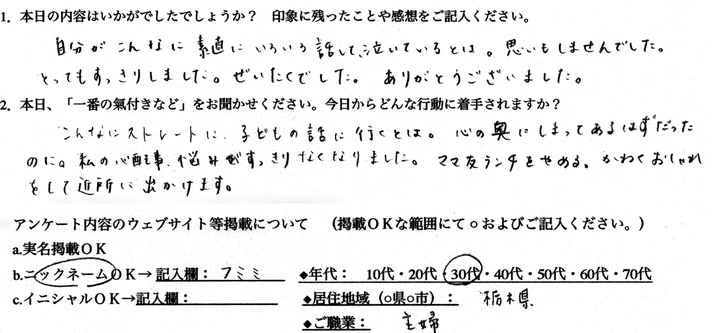 1. 本日の内容はいかがでしたでしょうか？ 印象に残ったことや感想をご記入ください。
自分がこんなに素直にいろいろ話して、泣いているとは。思いもしませんでした。
とってもすっきりしました。ぜいたくでした。ありがとうございました。
2. 本日、「一番の氣付きなど」をお聞かせください。今日からどんな行動に着手されますか？
こんなにストレートに、子どもの話に行くとは。心の奥にしまってあるはずだった
のに。私の心配事、悩みがすっきりなくなりました。ママ友ランチをやめる。かわくおしゃれ
をして近所に出かけます。
アンケート内容のウェブサイト等掲載について （掲載ＯＫな範囲にて○およびご記入ください。）
a.実名掲載ＯＫ
b.ニックネームＯＫ→ 記入欄： フミミ ◆年代： 10代・20代・30代・40代・50代・60代・70代
c.イニシャルＯＫ→記入欄： ◆居住地域（○県○市）： 栃木県
◆ご職業： 主婦